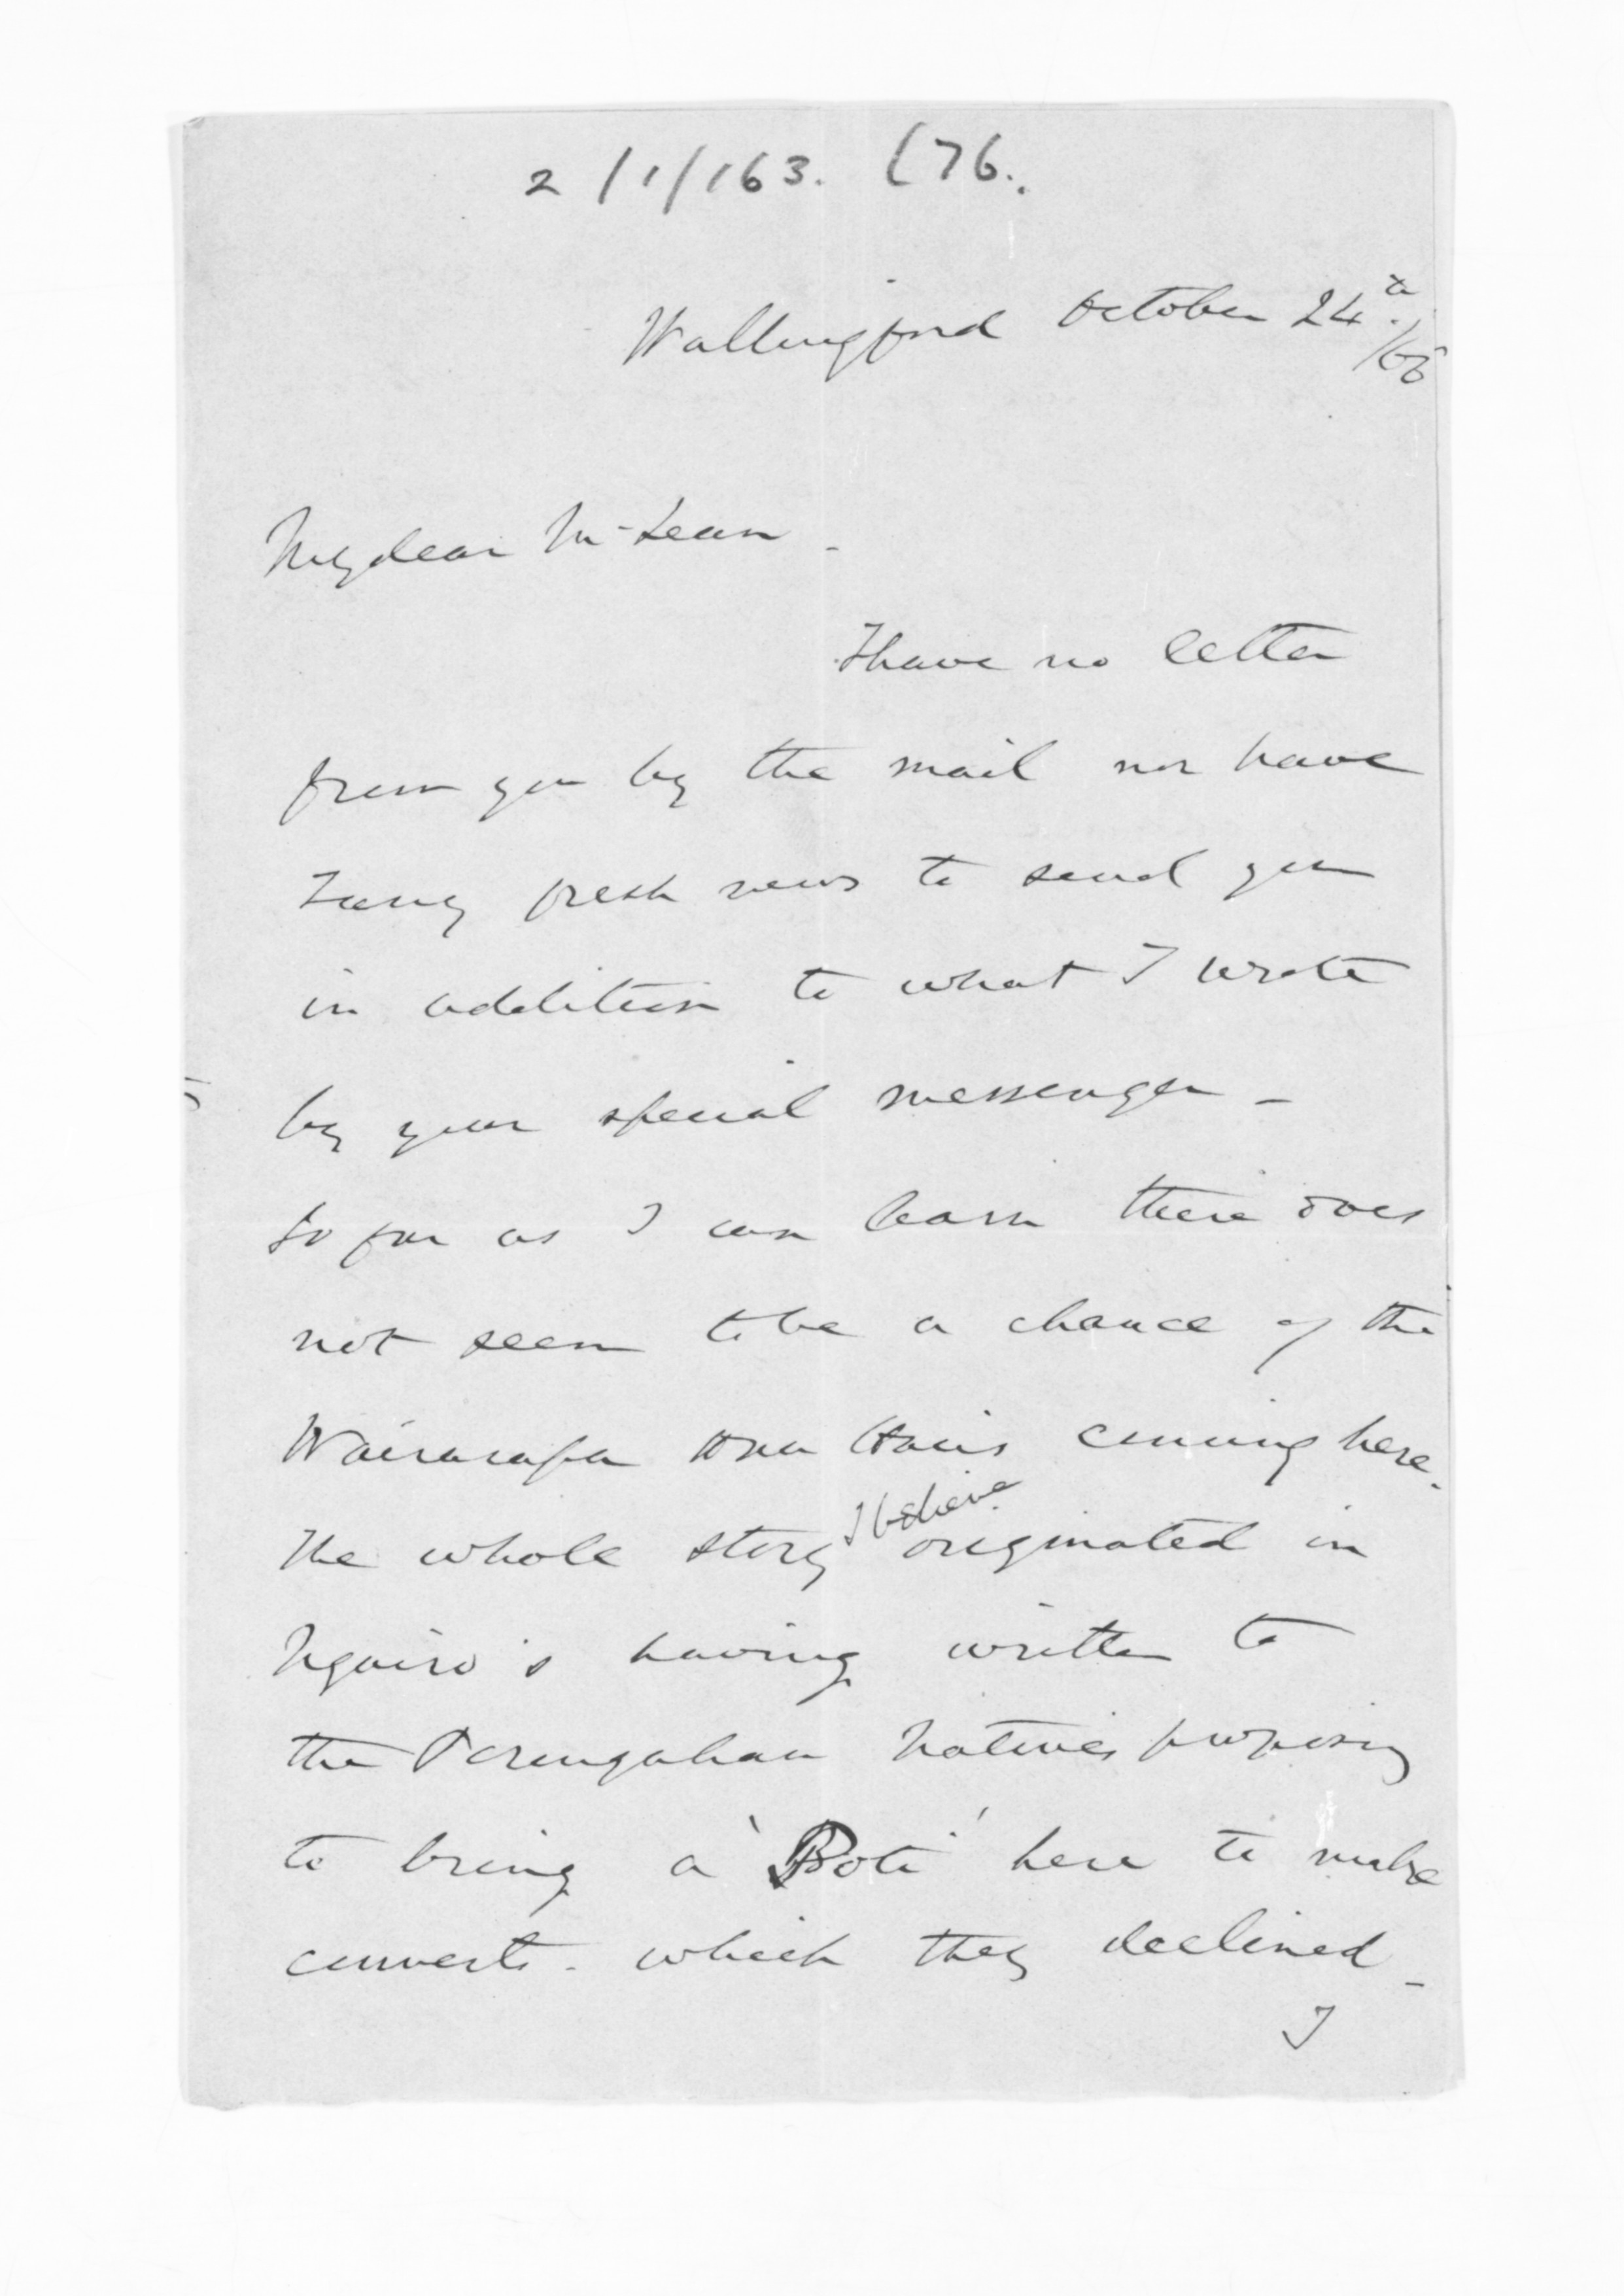 2/1/163. (76.
Wallingford October 24th./68
My dear McLean -
I have no letter
from you by the mail nor have
I any fresh news to send you
in addition to what I wrote
by your special messenger -
So far as I can learn there does
not seem to be a chance of the
Wairarapa Hau Haus coming here.
The whole story I believe originated in
Ngairo's having written to
the Porangahau Natives proposing
to bring a 'Poti' here to make
converts - which they declined -
I